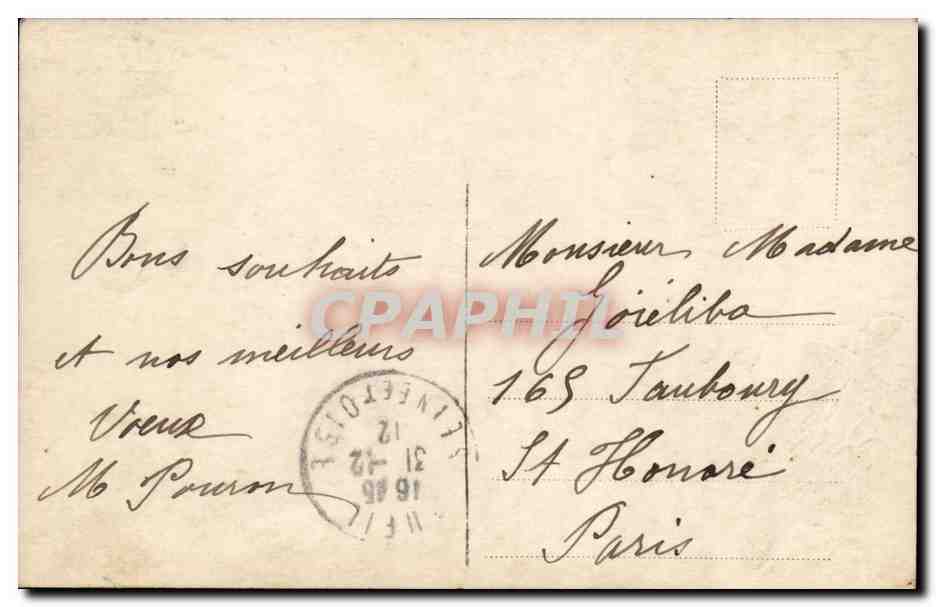 Bons souhaits
et nos meilleurs
Voeux
M Pouron
Monsieur Madame
Goiéliba
165 Faubourg
St Honoré
Paris
CPAPHIL
SEINE ET OISE
12
31 - 12
16 45